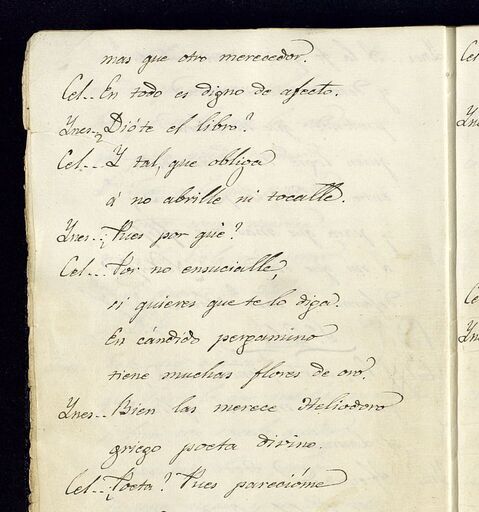 mas que otro merecedor.
Cel.. En todo es digno de afecto.
Ynes.. ¿Dióte el libro?
Cel... Y tal, que obliga
á no abrille ni tocalle.
Ynes.. ¿Pues por qué?
Cel... Por no ensucialle,
si quieres que te lo diga.
En cándido pergamino
tiene muchas flores de oro.
Ynes.. Bien las merece Heliodoro
griego poeta divino.
Cel.. ¿Poeta? Pues parecióme
Cel
Yn
Ce
Yn